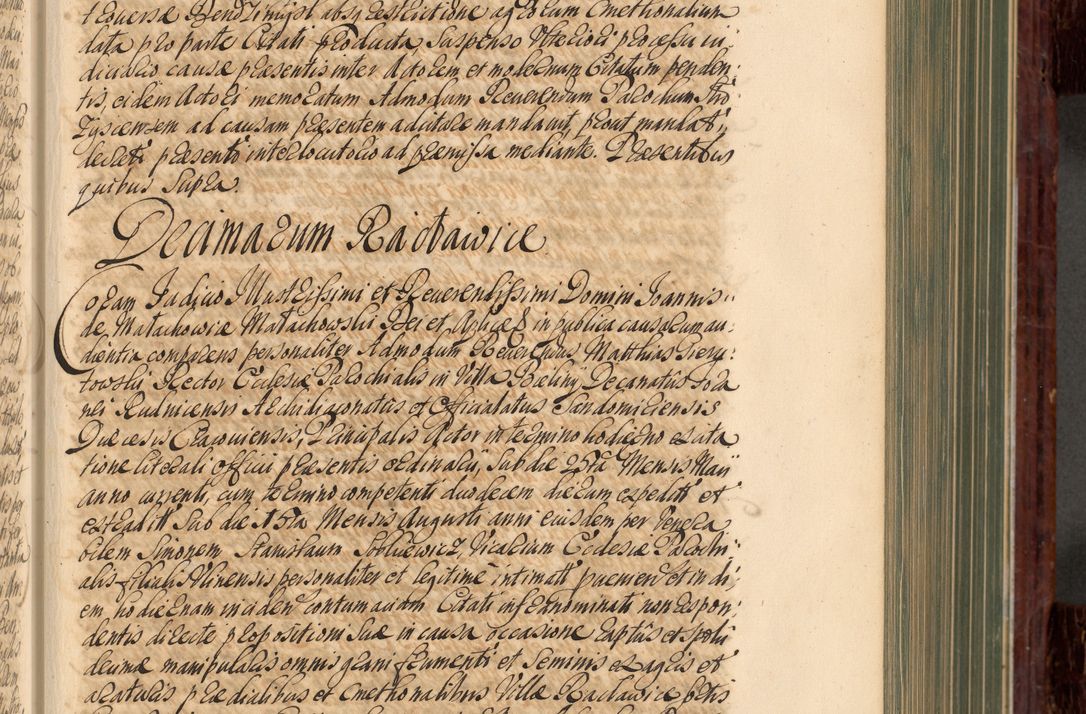 data pro parte Citati producta, Suspenso Ulteriori processu iu
diciario causæ præsentis inter Actorem et modernum Citatum penden
tis, eidem Actori memoratum Admodum Reverendum Parochum
ad causam præsentem adcitare mandavit, prout mandat,
decreti præsenti interlocutorio ad præmissa mediante. Præsentibus
quibus Supra.
Decimarum Racławice
Coram Judicio Illustrissimi et Reverendissimi Domini Joannis
de Małachowice Małachowski Dei et Aplicæ S in publica causarum au
dientia comparens personaliter Admodum Reverendus Matthias
towski Rector Ecclesiæ Parochialis in Villa Decanatus
nei Rudnicensis Archidiaconatus et Officialatus Sandomiriensis
Diæcesis Cracoviensis, Principalis Actor in termino hodierno ex cita
tione literali officii præsentis ordinarii, Sub die 25ta Mensis Maij
anno currenti, cum termino competenti duodecem dierum expedit et
extradit Sub die 15ta Mensis Augusti anni eiusdem per Venera
bilem Simonem Stanislaum Vicarium Ecclesiæ Parochi
alis filialis personaliter et legitime intimat et in di
em hodiernam inciden contumaciam Citati infranominati non respon
dentis directe propositioni Suæ in causa occasione raptus et spolii
decimæ manipularis omnis grani frumenti et Seminis ex agris et
araturis prædialibus et Cmethonalibus Villæ Racławice